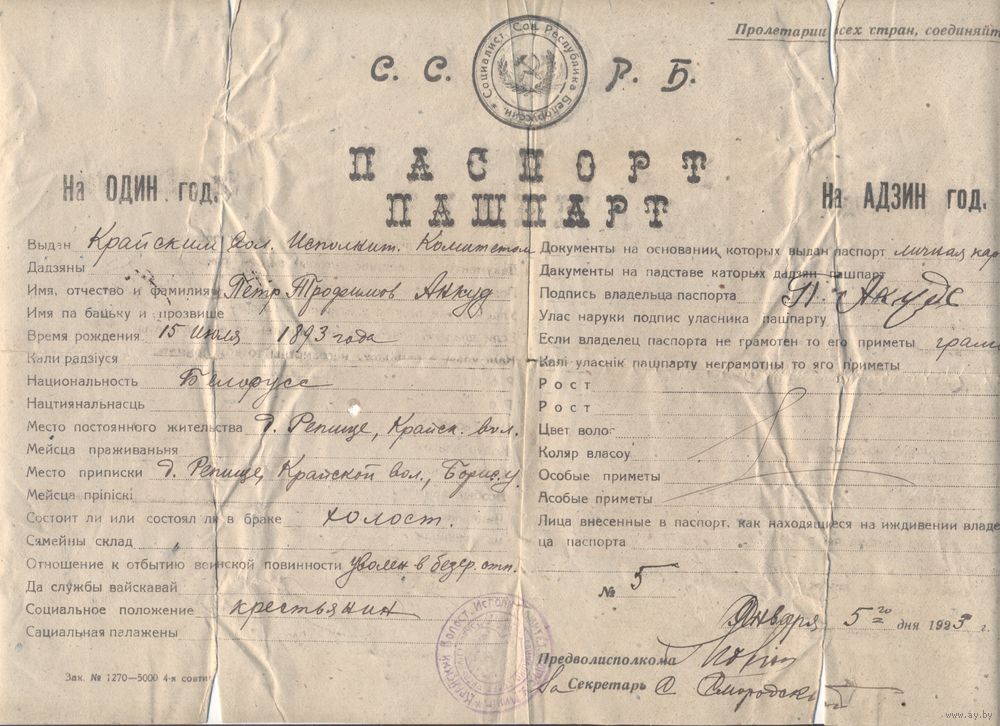 Пролетарии всех стран, соединяйт
С. С. Р. Б.
Социалист. Сов. Республика Белоруссии.
ПАСПОРТ
ПАШПАРТ
На ОДИН год.
На АДЗИН год.
Выдан Крайским Вол. Исполнит. Комитетом
Дадзяны
Имя, отчество и фамилия Петр Трофимов Анкуд
Имя па бацьку и прозвище
Время рождения 15 июля 1893 года
Кали радзіуся
Национальность Белорусс
Нацтияналь­насць
Место постоянного жительства д. Репище, Крайск. вол.
Мейсца праживаньня
Место приписки д. Репище, Крайской вол., Борис. у.
Мейсца пріпіскі
Состоит ли или состоял ли в браке холост.
Сямейны склад
Отношение к отбытию воинской повинности уволен в безср. отп.
Да службы вайскавай
Социальное положение крестьянин
Сацияльная палажены
Зак. № 1270—5000 4-я совти
Документы на основании которых выдан паспорт личная кар
Дакументы на падставе каторых дадзян пашпарт
Подпись владельца паспорта П. Анкуд
Улас наруки подпис уласника пашпарту
Если владелец паспорта не грамотен то его приметы грамо
Калі уласнік пашпарту неграмотны то яго приметы
Рост
Рост
Цвет волос
Коляр власоу
Особые приметы
Асобые приметы
Лица внесенные в паспорт, как находящиеся на иждивении владе
ца паспорта
№ 5
Января 5го дня 1923 г.
Предволисполкома
За Секретарь С.
www.ay.by